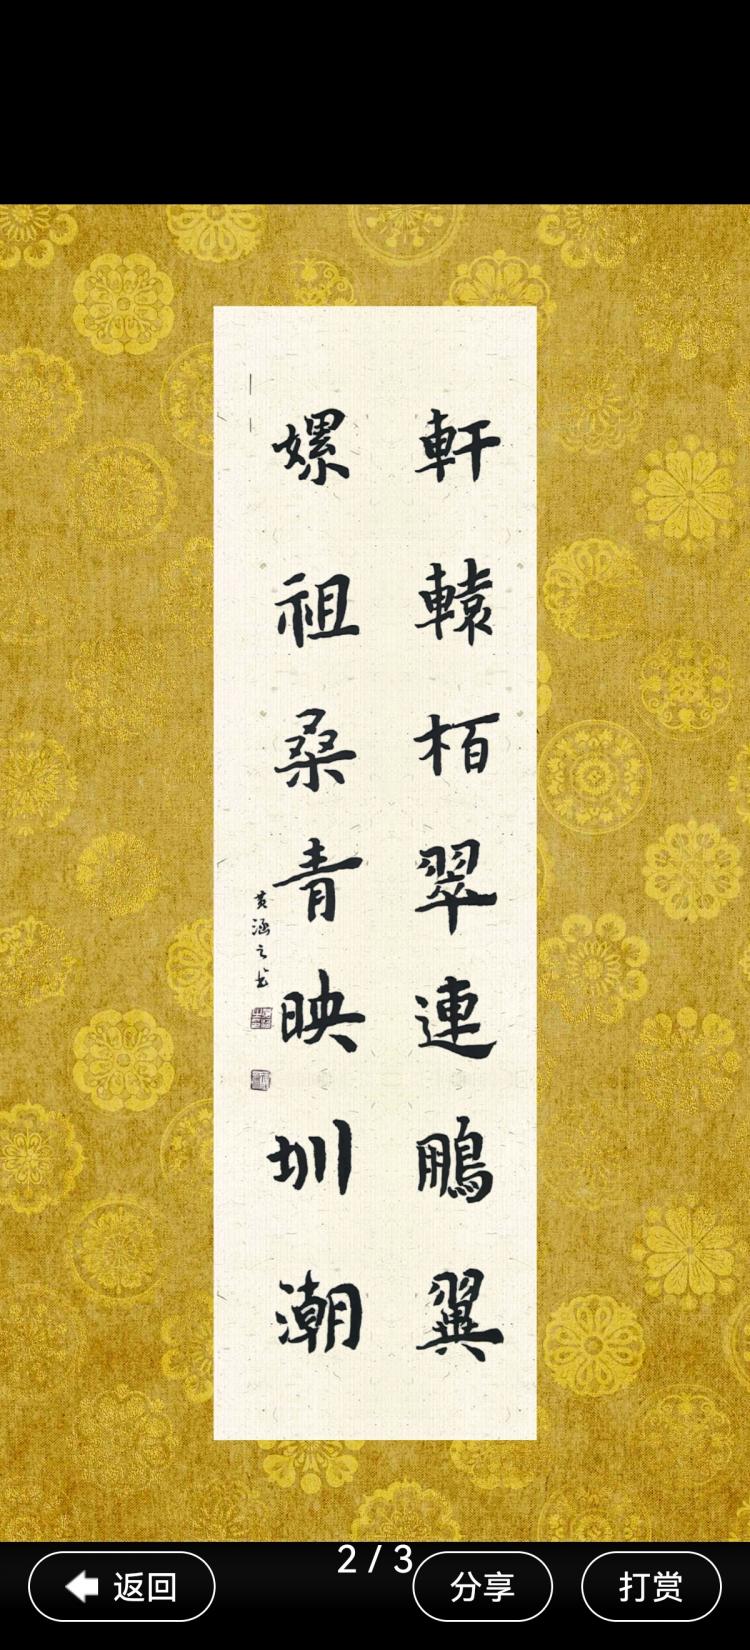 軒轅栢翠連鵬翼
嫘祖桑青映圳潮
黄涵之书
2 / 3
返回
分享
打赏